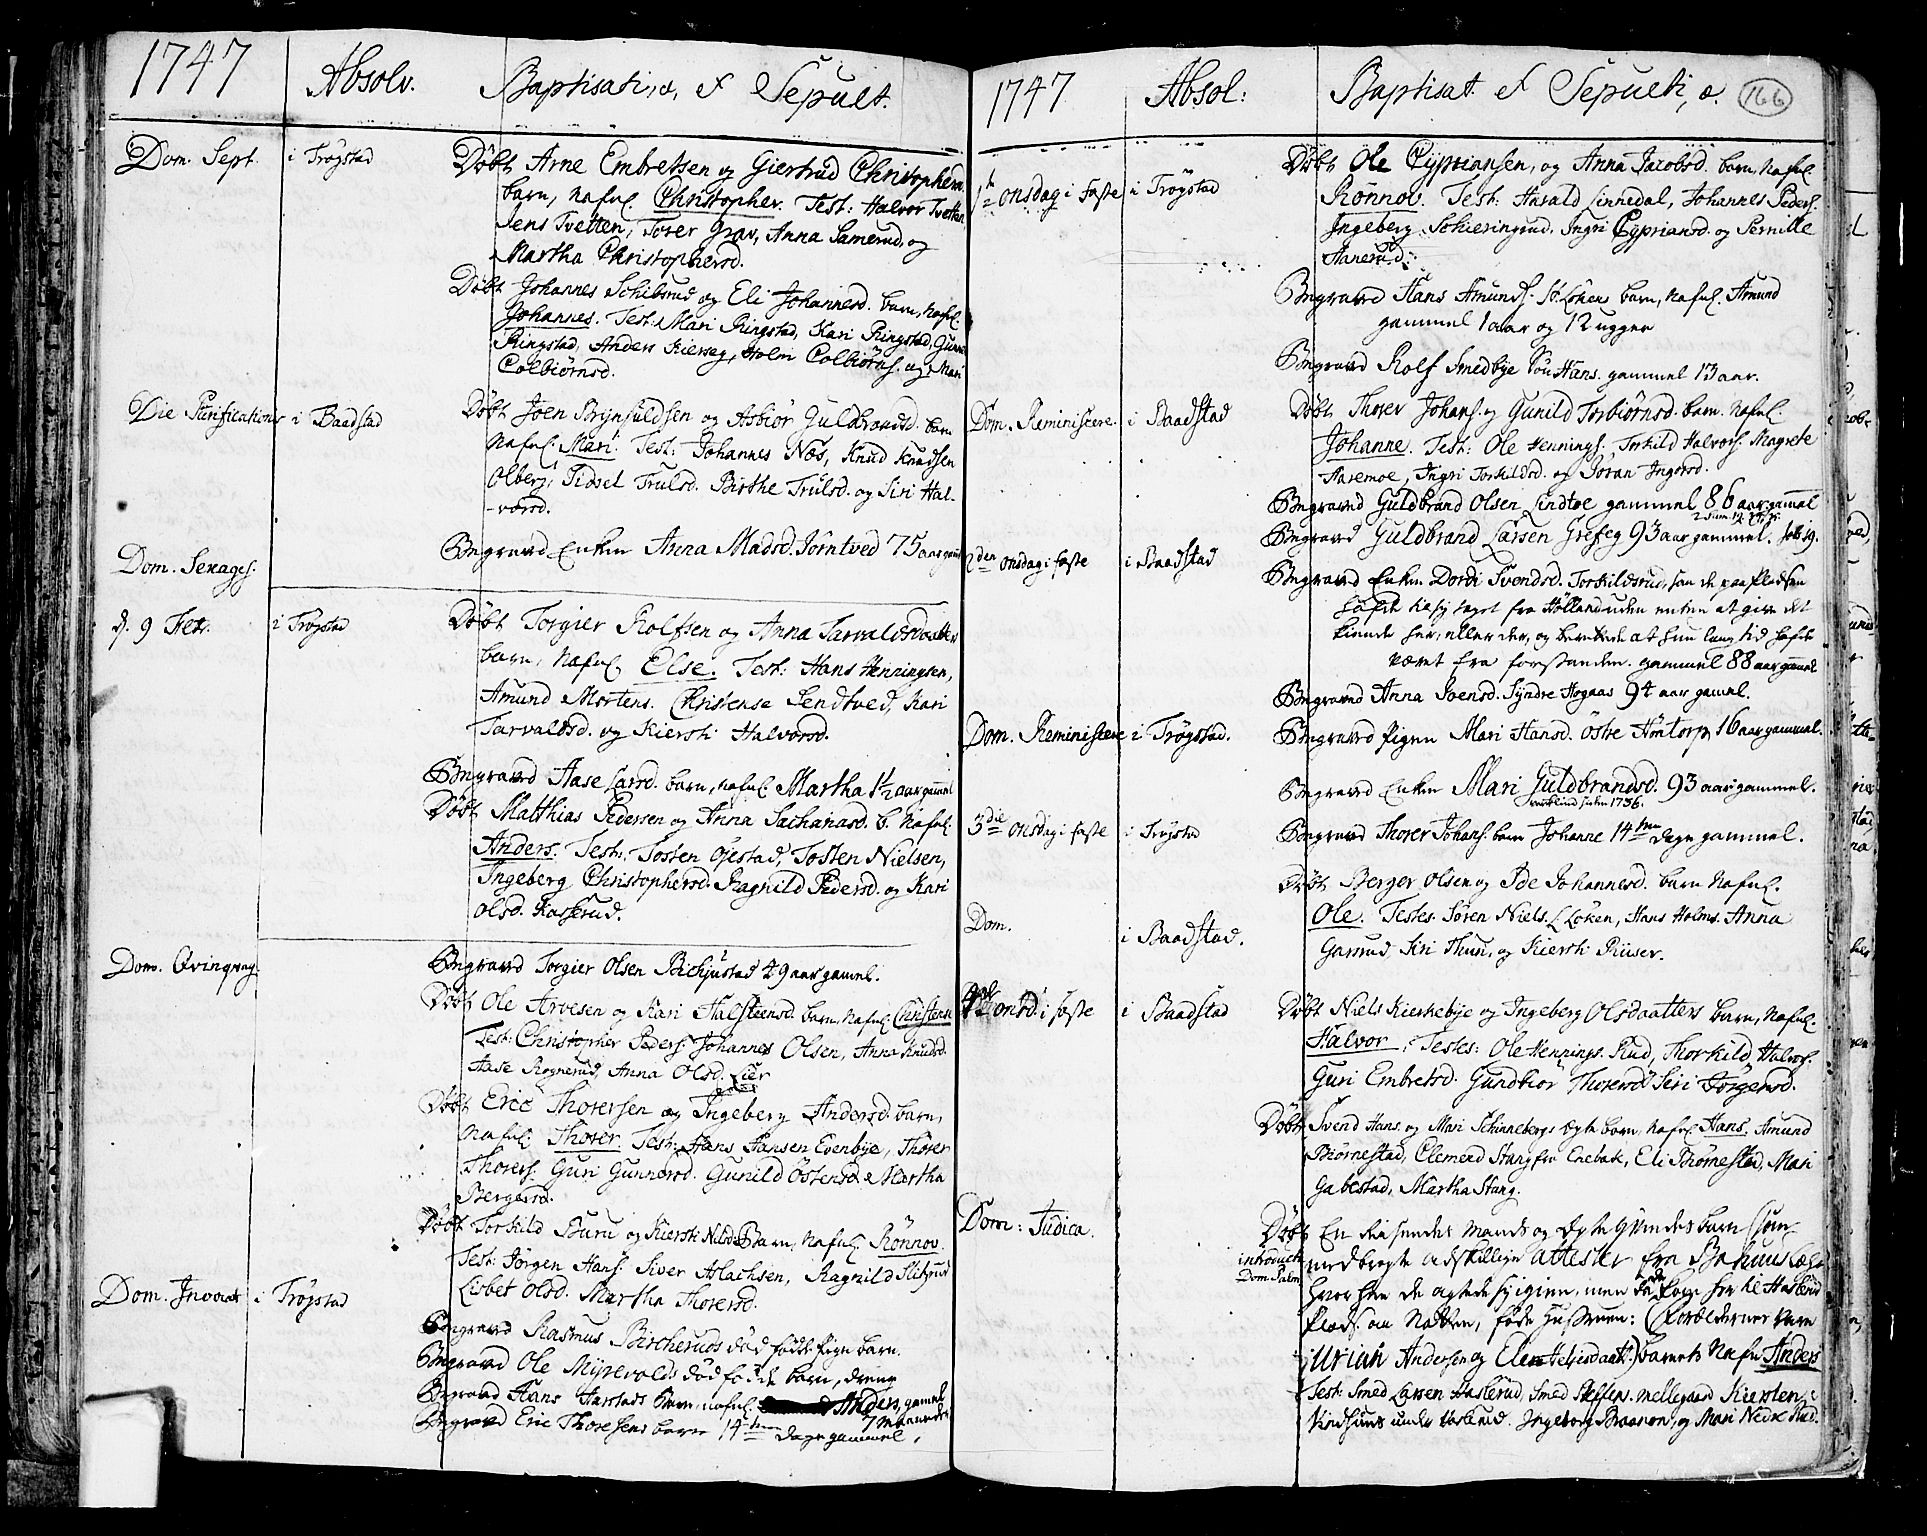 1747 Absolv. Baptisati, &, et Sepult.
Dom. Sept. i Trøgstad
Døbt Arne Embretsen og Giertrud Christophersd.
barn, nafnl. Christopher. Test: Halvor Tvetten
Jens Tvetten, Torer Grav, Anna Samerud, og
Martha Christophersd.
Døbt Johannes Schibsrud og Eli Johannesd. barn, nafnl.
Johannes. Test: Mari Ringstad, Kari Ringstad, Gunner
Ringstad, Anders Kierseg, Holm Colbiørns. og Mari
Colbiørnsd.
Die Purificationis i Baadstad
Døbt Joen Brynfuldsen og Asbiør Guldbrandsd. barn
nafnl. Mari. Test: Johannes Næs, Knud Knudsen
Olberg, Sidsel Trulsd. Birthe Trulsd. og Siri Hal-
-vorsd.
Dom. Sexages.
Begravd Enken Anna Madsd. Jørntved 75 aar gamel
d. 9 Febr. i Trøgstad
Døbt Torgier Rolfsen og Anna Tarvaldsdaatters
barn, nafnl. Else. Test: Hans Henningsen,
Amund Mortens. Christense Sendtved, Kari
Tarvaldsd. og Kiersti Halvorsd.
Begravd Aase Larsd. barn, nafnl. Martha 1½ aar gammel
Døbt Matthias Pedersen og Anna Sachariasd. b. nafnl.
Anders. Test: Tosten Øjestad, Tosten Nielsen,
Ingeberg Christophersd. Ragnild Pedersd. og Kari
Olsd. Kasserud.
Dom. Qvinqvag.
Begravd Torgier Olsen Bichjustad 49 aar gamel.
Døbt Ole Arvesen og Kari Halsteensd. barn, nafnl. Christense
Test: Christopher Peders. Johannes Olsen, Anna Knudsd.
Aase Rognerud, Anna Olsd. Lier
Døbt Eric Thorersen og Ingeberg Andersd. barn,
nafnl. Thorer. Test: Hans Hansen Evenbye, Thorer
Thorers. Guri Gunnersd. Gunild Østensd. & Martha
Bergersd.
Døbt Torkild Buru og Kiersti Nilsd. Barn, nafnl. Rønnov.
Test: Jørgen Hans. Siver Aslachsen, Ragnild Slitsrud
Lisbet Olsd. Martha Thorersd.
Dom. Invocav. i Trøgstad
Begravd Rasmus Bircheruds død fødte Pige barn.
Begravd Ole Myrevolds død fødde barn, dreng
Begravd Hans Harstads Barn, nafnl. Anders, gammel
7 maaneder
Begravd Eric Thoresens barn 14ten dage gammel,
1747 Absol: Baptisat. et Sepulti, &. 166
1te onsdag i faste i Trøgstad
Døbt Ole Cypriansen, og Anna Jacobsd. barn, nafnl.
Rønnov. Test: Harald Linnedal, Johannes Peders.
Ingeberg Schieringrud, Ingri Cypriansd. og Pernille
Hanerud.
Begravd Hans Amunds. Sø. Løkens barn, nafnl. Amund
gammel 1 aar og 12 ugger
Begravd Rolf Smedbye Søn Hans. gammel 13 aar.
Dom. Reminiscere. i Baadstad
Døbt Thorer Johans. og Gunild Torbiørnsd. barn. nafnl.
Johanne. Test: Ole Hennings. Torkild Halvors. Magrete
Aasemoe, Ingri Torkildsd. og Jøran Ingersd.
Begravd Guldbrand Olsen Lindtoe gammel 86 aar gammel
Begravd Guldbrand Larsen Grefeg 93 aar gammel.
2den onsdag i faste i Baadstad
Begravd Enken Dordi Svendsd. Torkildsrud, som de paa Pladsen
hafde til sig taget fra Hølland uden enten at give det
kiende her, eller der, og berettede at hun lang tid hafde
været fra forstanden. gammel 88 aar gammel
Begravd Anna Svensd. Syndre Hogaas 94 aar gamel.
Dom. Reminiscere i Trøgstad.
Begravd Pigen Mari Hansd. Østre Høntorp 16 aar gammel.
Begravd Enken Mari Guldbrandsd. 93 aar gammel.
3die onsdag i faste i Trøgstad
Begravd Thorer Johans. barn Johanne 14ten Dage gammel.
Døbt Berger Olsen og Ide Johannesd. barn nafnl.
Ole. Testes. Søren Niels. Løken, Hans Holms. Anna
Garsrud, Siri Thun, og Kiersti Riiser.
Dom. i Baadstad.
4de onsd. i faste i Baadstad
Døbt Niels Kierkebye og Ingeberg Olsdaatters barn, nafnl.
Halvor. Testes: Ole Hennings. Rud, Thorkild Halvors.
Guri Embretsd. Gundbiør Thorersd. Siri Jørgensd.
Døbt Svend Hans. og Mari Schinnebergs ægte barn, nafnl. Hans. Amund
Biørnestad, Clemend Stang fra Enebak, Eli Biørnestad, Mari
Gabestad, Martha Stang.
Dom: Judica.
Døbt En Reisendes Mands og Ægte Qvindes barn (som
introduct. medbragte adskillige attester fra Bahuus Læn
Dom. Palm. hvor hen de agtede sig igien, men
Plads om Natten, føde Hustruen: (Forældernes Navn
Uriah Andersen og Elen Helgesdaatt.) barnets Nafn Anders
Test: Smed Larsen Haslerud, Smed Steffens. Mellegaard Kiersten
Knudhuus under Haslerud. Ingeborg Braaten, og Mari Nedre Rud.